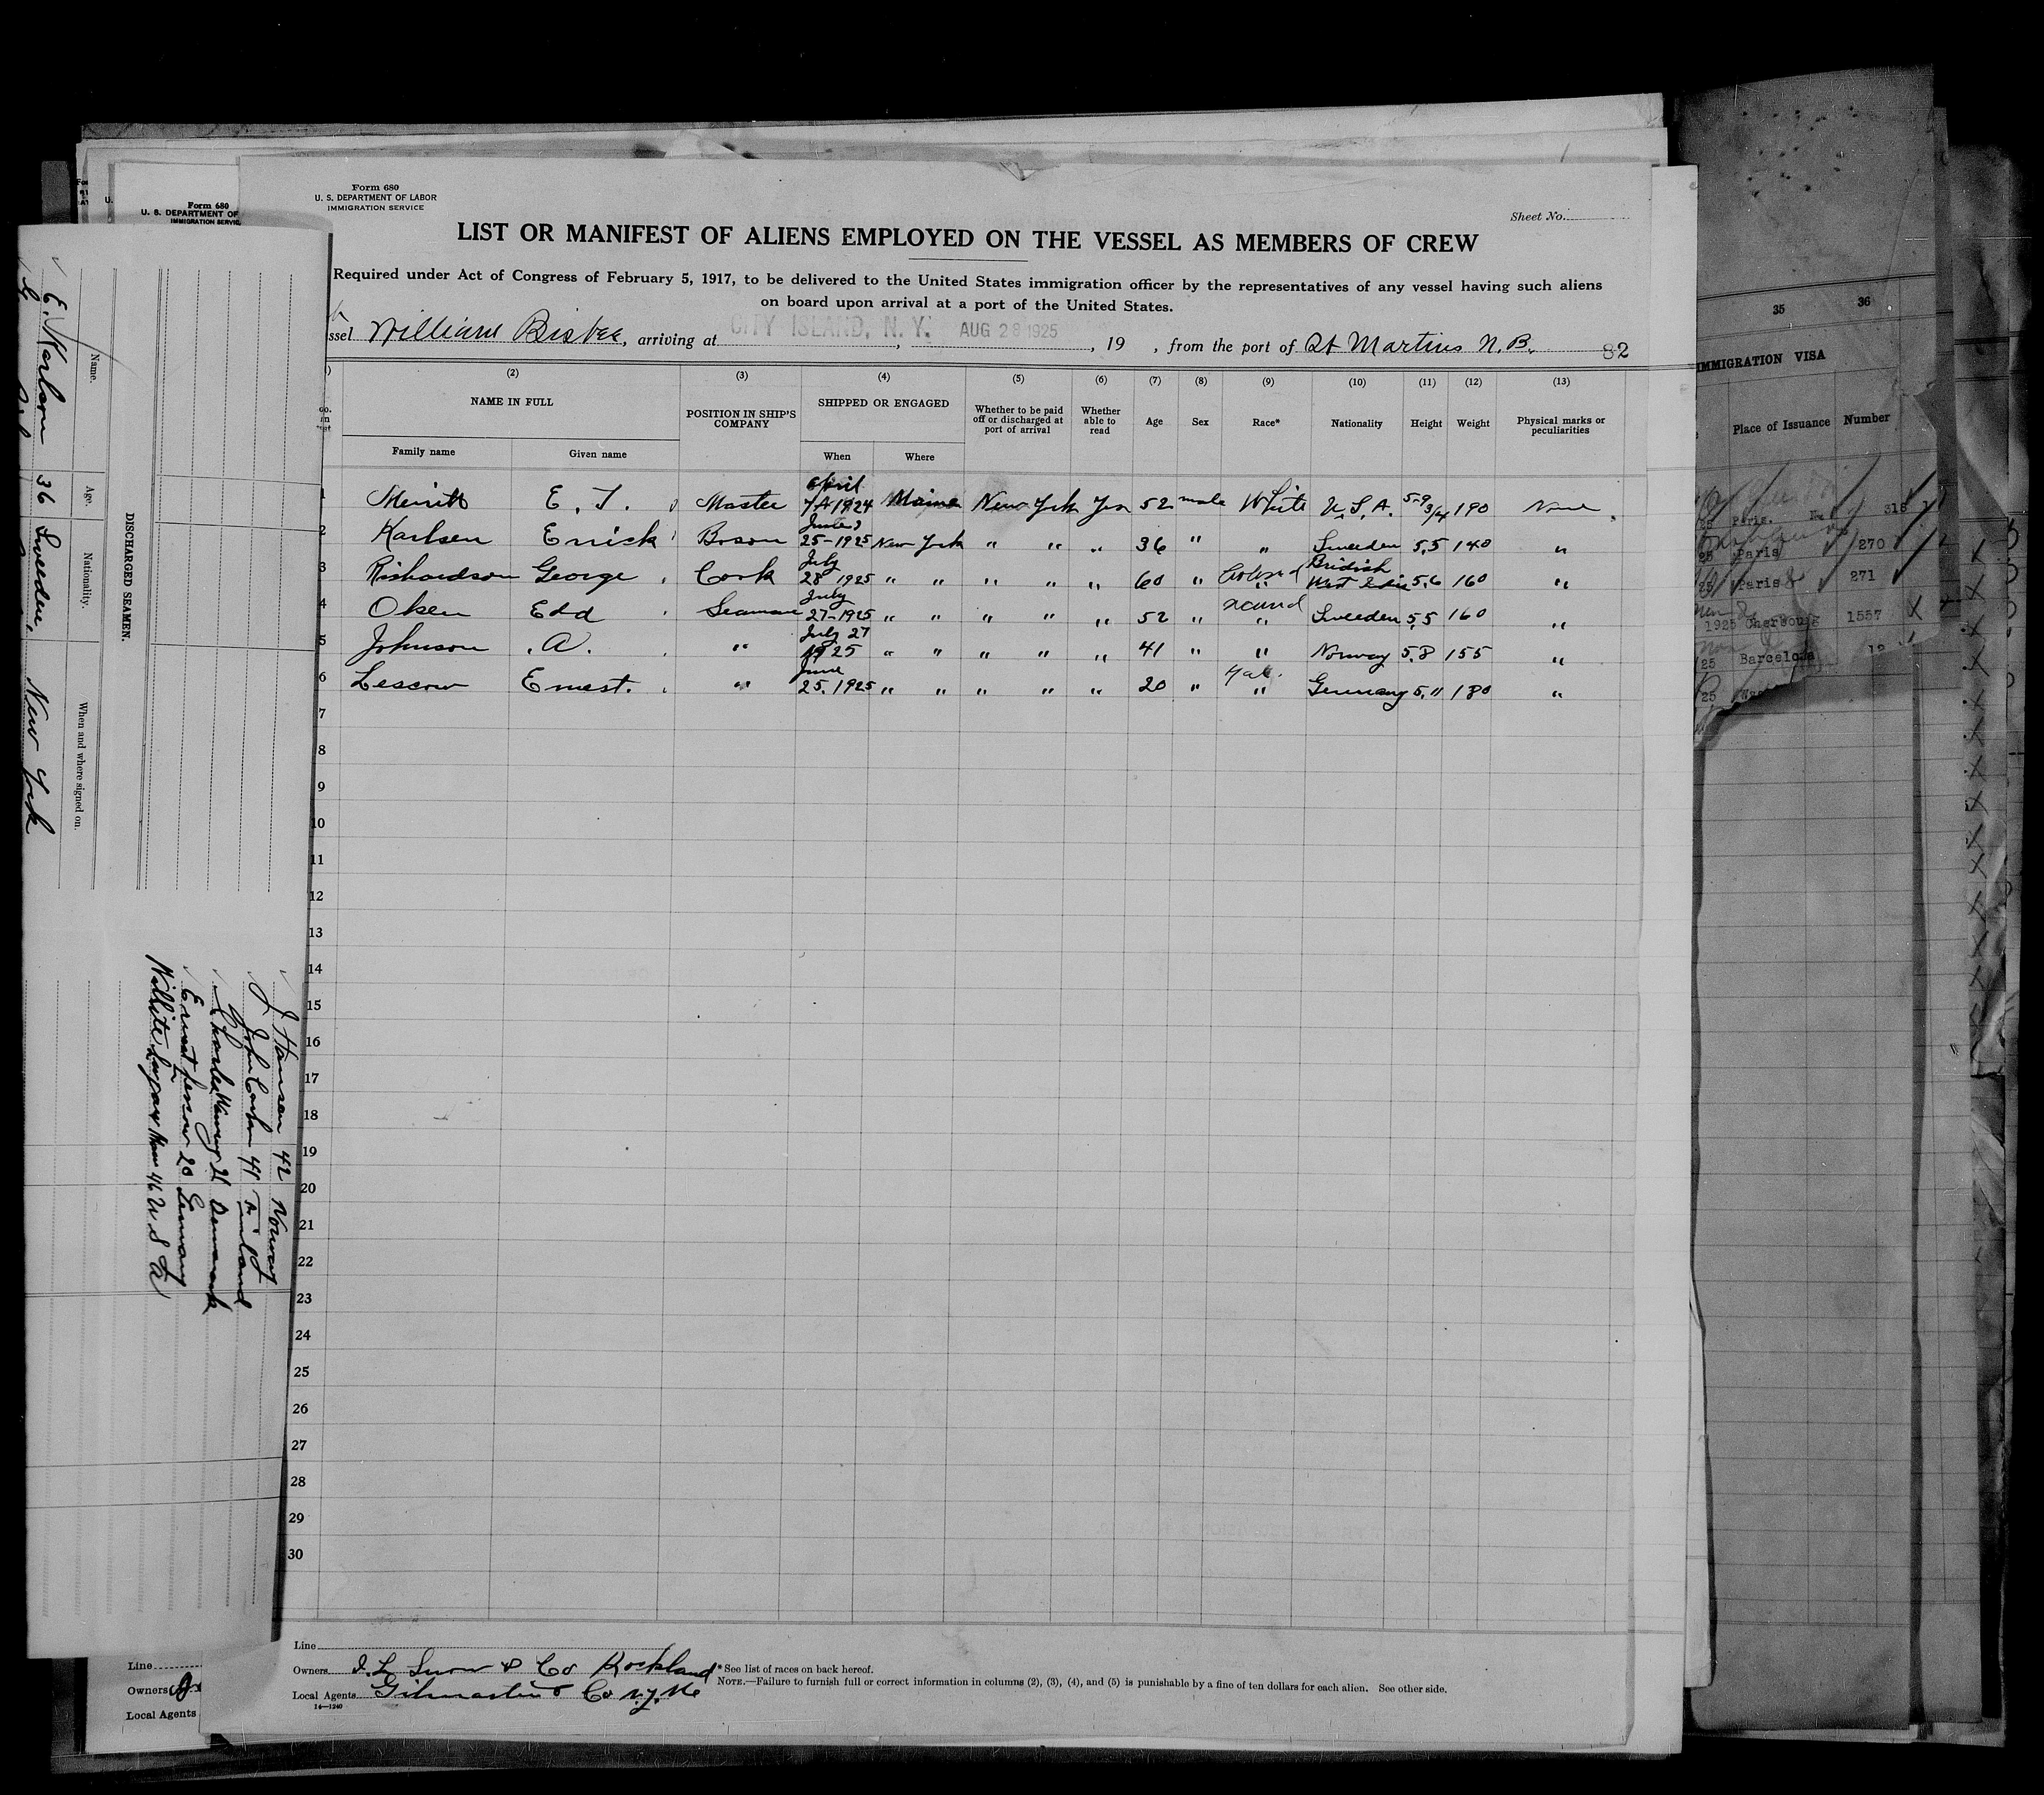 Form 680
U. S. DEPARTMENT OF LABOR
IMMIGRATION SERVICE
Sheet No.
LIST OR MANIFEST OF ALIENS EMPLOYED ON THE VESSEL AS MEMBERS OF CREW
Required under Act of Congress of February 5, 1917, to be delivered to the United States immigration officer by the representatives of any vessel having such aliens
on board upon arrival at a port of the United States.
ssel William Bisbee, arriving at CITY ISLAND, N. Y. AUG 28 1925, 19 , from the port of St Martins N. B. 82
(2) (3) (4) (5) (6) (7) (8) (9) (10) (11) (12) (13)
NAME IN FULL POSITION IN SHIP'S COMPANY SHIPPED OR ENGAGED Whether to be paid off or discharged at port of arrival Whether able to read Age Sex Race* Nationality Height Weight Physical marks or peculiarities
Family name Given name When Where
1 Merritt E. T. Master April 1924 Maine New York Yes 52 male White U.S.A. 5-9 3/4 190 None
2 Karlsen Erick Boson 25-1925 New York " " " 36 " " Sweeden 5.5 140 "
3 Richardson George Cook July 28 1925 " " " " " 60 " Colored British West Indie 5.6 160 "
4 Olsen Edd Seaman July 27-1925 " " " " " 52 " " Sweeden 5.5 160 "
5 Johnson A. " July 27 1925 " " " " " 41 " " Norway 5.8 155 "
6 Lescow Ernest. " June 25.1925 " " " " " 20 " " Germany 5.11 180 "
7
8
9
10
11
12
13
14
15
16
17
18
19
20
21
22
23
24
25
26
27
28
29
30
Line
Owners I. L. Snow & Co Rockland
Local Agents Gilmartin & Co N.Y.
14—1240
* See list of races on back hereof.
NOTE.—Failure to furnish full or correct information in columns (2), (3), (4), and (5) is punishable by a fine of ten dollars for each alien. See other side.
Form 680
U. S. DEPARTMENT OF
IMMIGRATION SERVIC
DISCHARGED SEAMEN.
Name. Age. Nationality. When and where signed on.
E. Karlson 36 Sweeden New York
J Hansen 42 Norway
John 41 Finland
Charles 21 Denmark
Ernest Lescow 20 Germany
46 U S A
Line
Owners
Local Agents
35 36
IMMIGRATION VISA
Place of Issuance Number
25 Paris. 318
25 Paris 270
25 Paris 271
1925 Cherbourg 1557
25 Barcelona
25